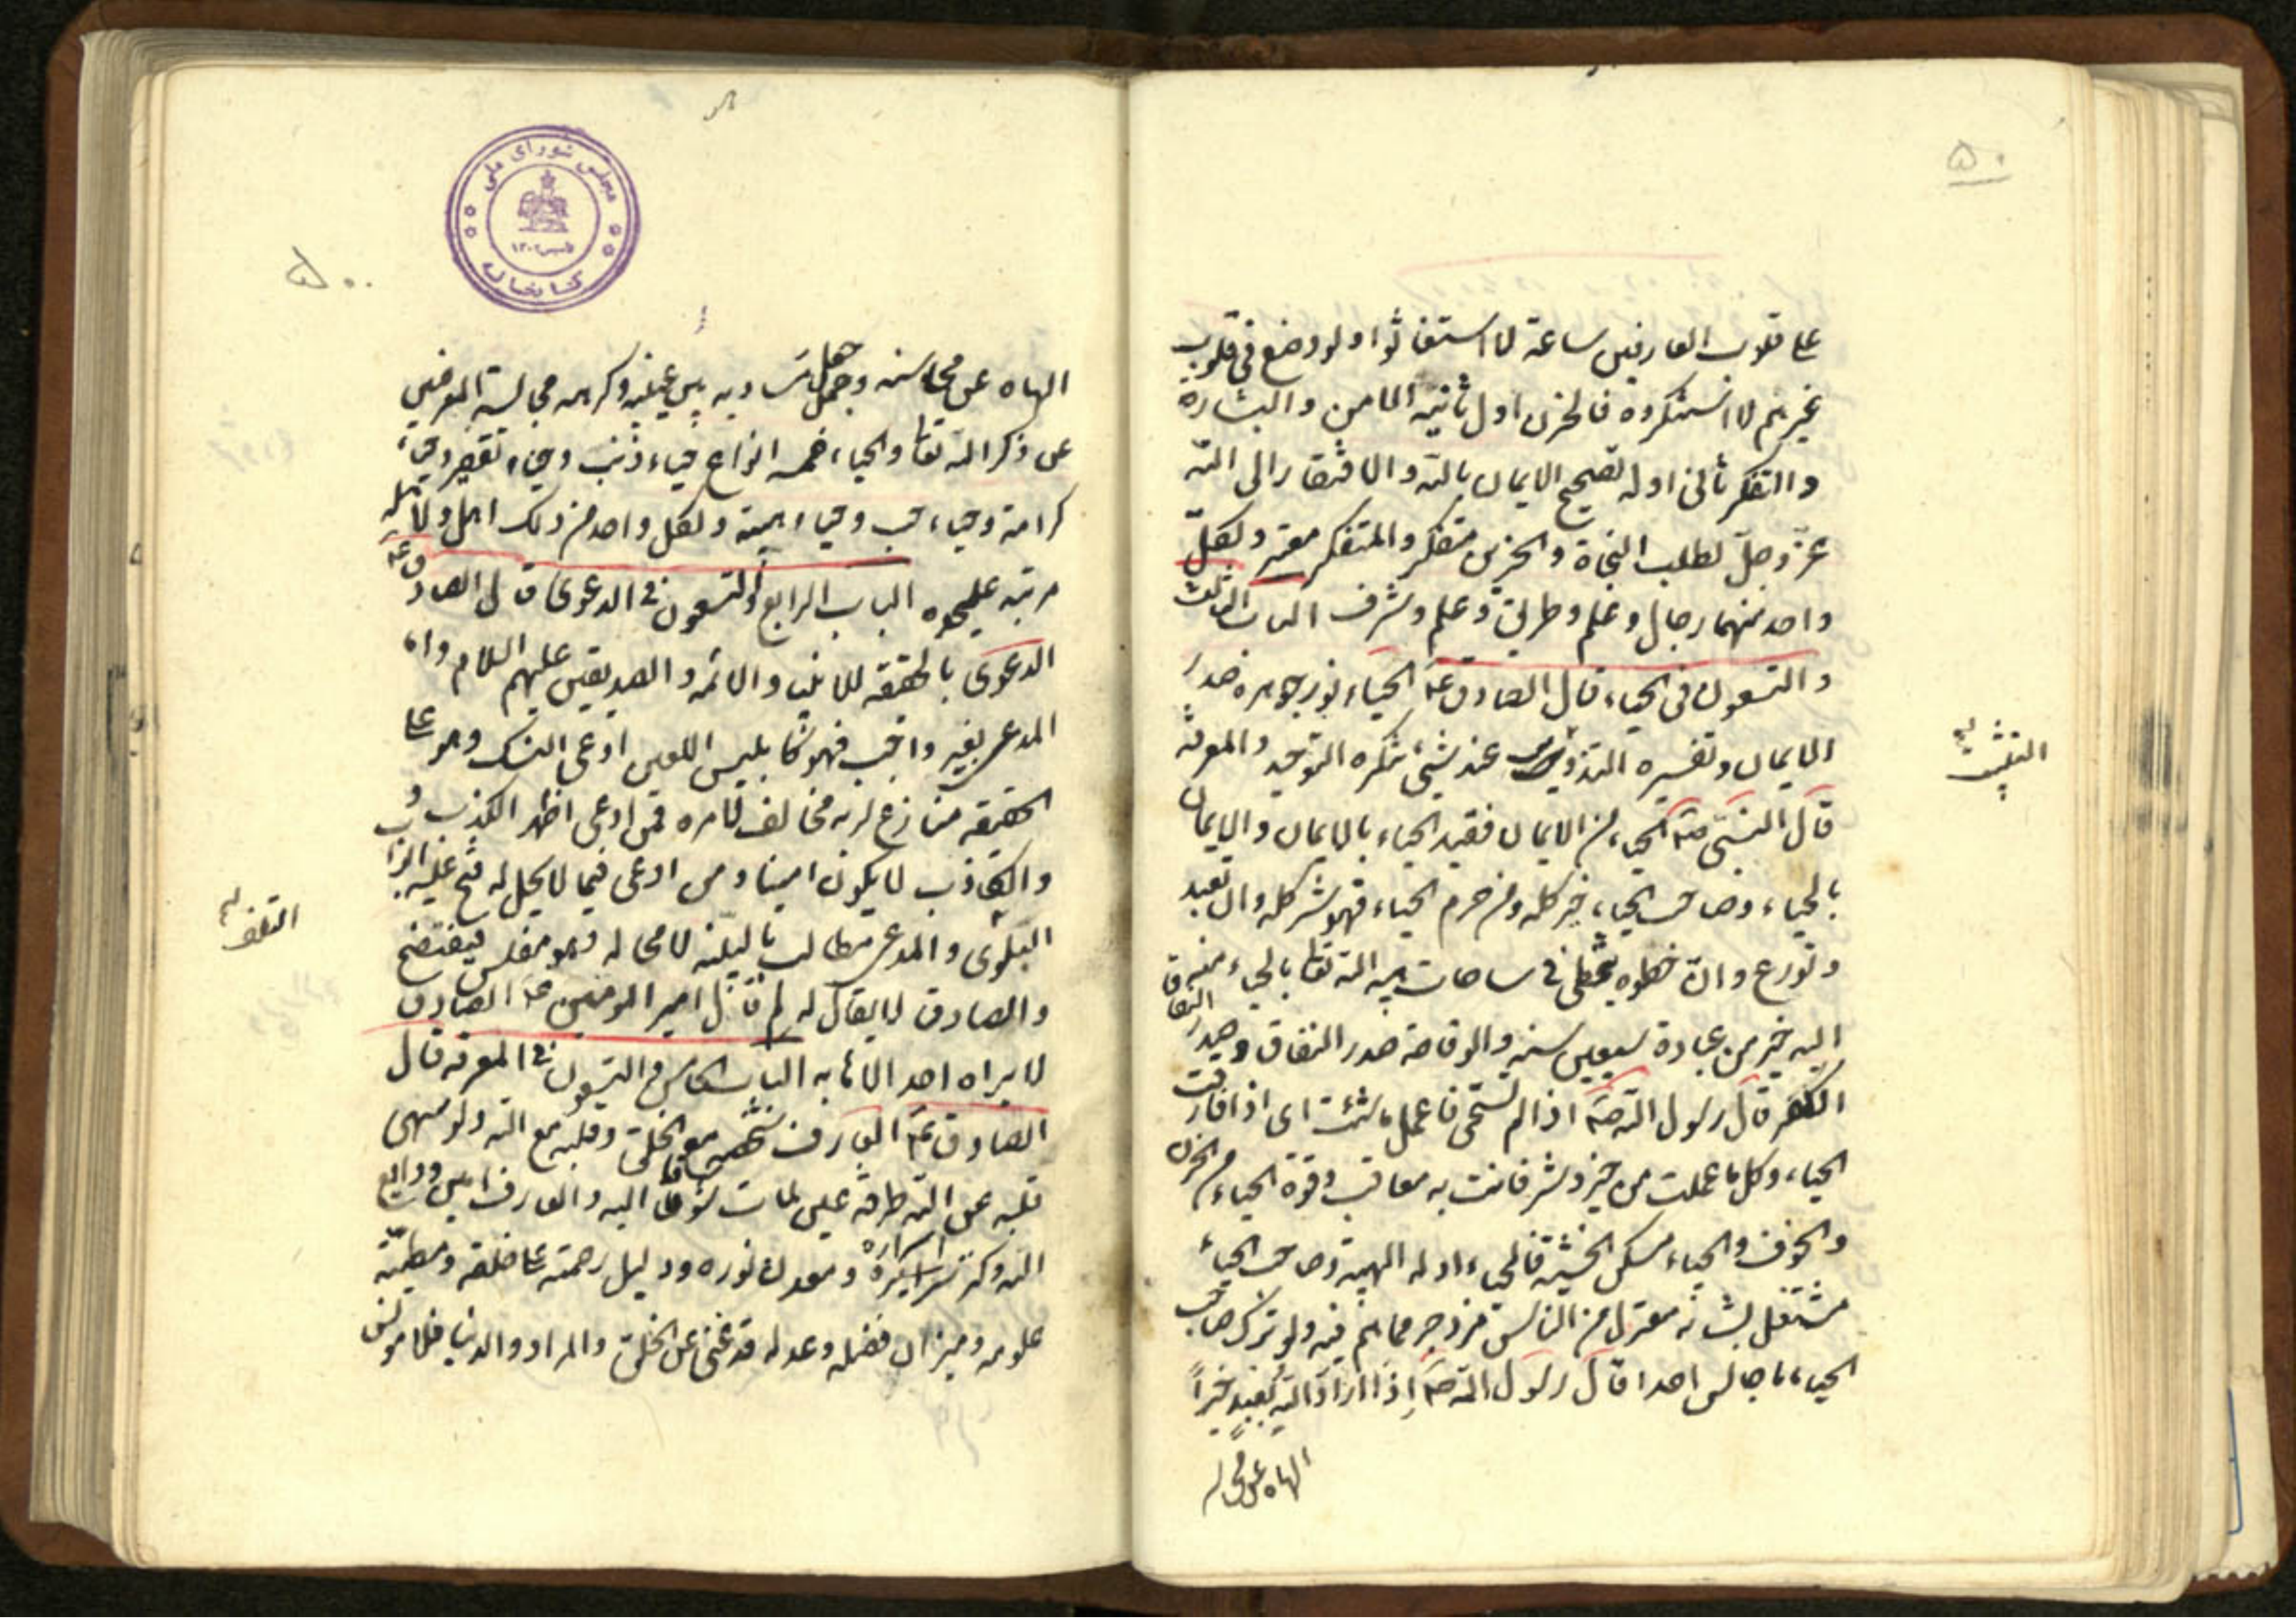 ٥٠
على قلوب العارفين ساعة لاستغاثوا ولو وضع في قلوب
غيرهم لاستنكروه فالحزن اول ثانيه الامن والبشارة
والتفكر ثانى اوله تصحيح الايمان بالله والافتقار الى الله
عزّ وجلّ لطلب النجاة والحزين متفكر والمتفكر معتبر ولكلّ
واحد منهما رجال وعلم وطريق وعلم وشرف الباب الثالث
والتسعون في الحياء قال الصادق ع الحياء نور جوهره صدر
الايمان وتفسيره عند شيئ ينكره التوحيد والمعرفة
قال النبىّ صه الحياء من الايمان فقيد الحياء بالايمان والايمان
بالحياء وصاحب الحياء خير كله ومن حرم الحياء فهو شر كله وان تعبد
وتورع وانّ خطوه يتخطى في ساحات هيبة الله تعا بالحياء منه
اليه خير من عبادة سبعين سنه والوقاحة صدر النفاق وصدر
الكفر قال رسول الله صه اذا لم تستحى فاعمل ما شئت اى اذا فارقت
الحياء وكل ما عملت من خير وشر فانت به معاقب وقوة الحياء من الحزن
والخوف والحياء مسكن الخشية فالحياء اوله الهيبة وصاحب الحياء
مشتغل بشانه معتزل من الناس مزدجر مما هم فيه ولو ترك صاحب
الحياء ما جالس احدا قال رسول الله صه اذا اراد الله بعبد خيراً
الهاه عن محاسـ
التثبت
٥٠
مجلس شورای ملی
تاسیس ۱۳۰۲
کتابخانه
الهاه عن محاسنه وجعل مساويه بين عينيه وكرهه مجالسة المعرضين
عن ذكر الله تعا والحياء خمسه انواع حياء ذنب وحياء تقصير وحياء
كرامة وحياء حب وحياء هيبة ولكل واحد من ذلك اهل ولاهله
مرتبه عليحده الباب الرابع والتسعون في الدعوى قال الصادق ع
الدعوى بالحقيقه للانبياء والائمه والصديقين عليهم السلام واما
المدعى بغير واجب فهو كابليس اللعين ادعى النسك وهو على
الحقيقه منازع لربه مخالف لامره فمن ادعى اظهر الكذب
والكاذب لا يكون امينا ومن ادعى فيما لا يحل له فتح عليه ابواب
البلوى والمدعى مطالب بالبيّنه لا محاله وهو مفلس فيفتضح
والصادق لا يقال له لم قال امير المومنين ع الصادق
لا يراه احد الا هابه الباب الخامس والتسعون في المعرفه قال
الصادق ع العارف شخصه مع الخلق وقلبه مع الله ولو سهى
قلبه عن الله طرفة عين لمات شوقا اليه والعارف امين ودايع
الله وكنز اسراره ومعدن نوره ودليل رحمته على خلقه ومطيّة
علومه وميزان فضله وعدله قد غنى عن الخلق والمراد والدنيا فلا مونس